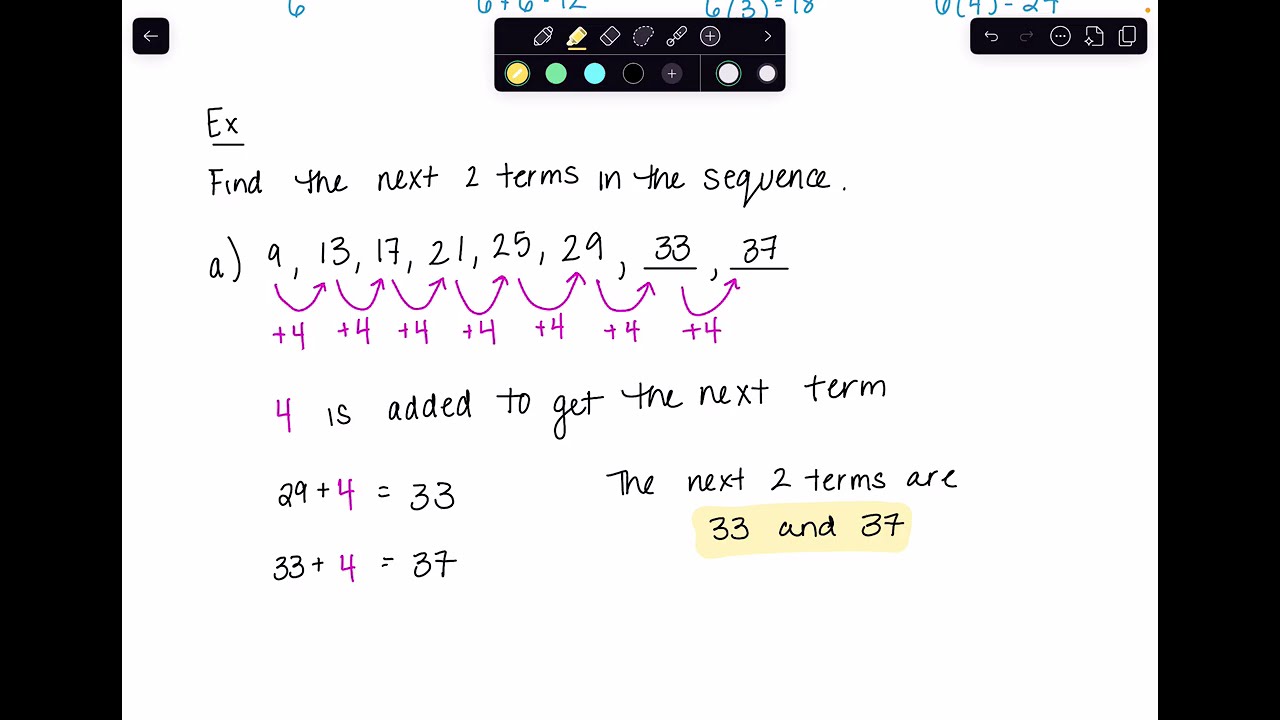 6 6+6=12 6(3)=18 6(4)=24
Ex
Find the next 2 terms in the sequence.
a) 9, 13, 17, 21, 25, 29, 33, 37
+4 +4 +4 +4 +4 +4 +4
4 is added to get the next term
29+4 = 33
The next 2 terms are
33 and 37
33+4 = 37